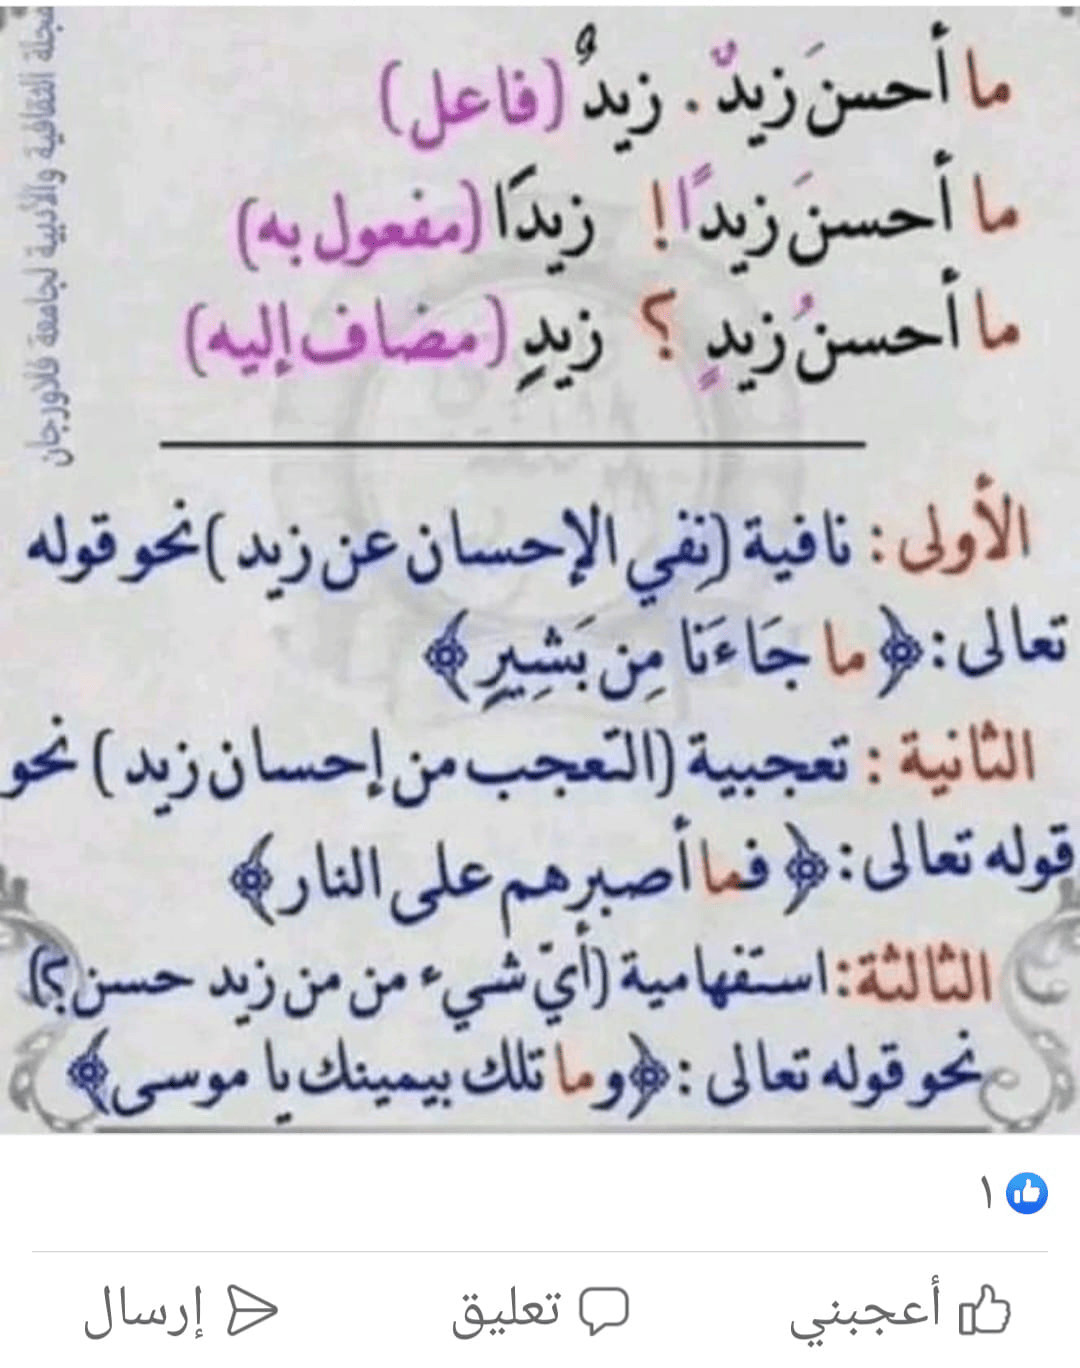 ما أحسنَ زيدٌ . زيدٌ (فاعل)
ما أحسنَ زيدًا! زيدَا (مفعول به)
ما أحسنُ زيدٍ ؟ زيدٍ (مضاف إليه)
الأولى : نافية (نفي الإحسان عن زيد ) نحو قوله
تعالى : ﴿ ما جَاءَنَا مِن بَشِيرٍ ﴾
الثانية : تعجبية (التعجب من إحسان زيد ) نحو
قوله تعالى : ﴿ فما أصبرهم على النار ﴾
الثالثة : استفهامية (أيّ شيء من من زيد حسن ؟)
نحو قوله تعالى : ﴿وما تلك بيمينك يا موسى﴾
مجلة الثقافية والأدبية لجامعة فلاورجان
١
أعجبني
تعليق
إرسال